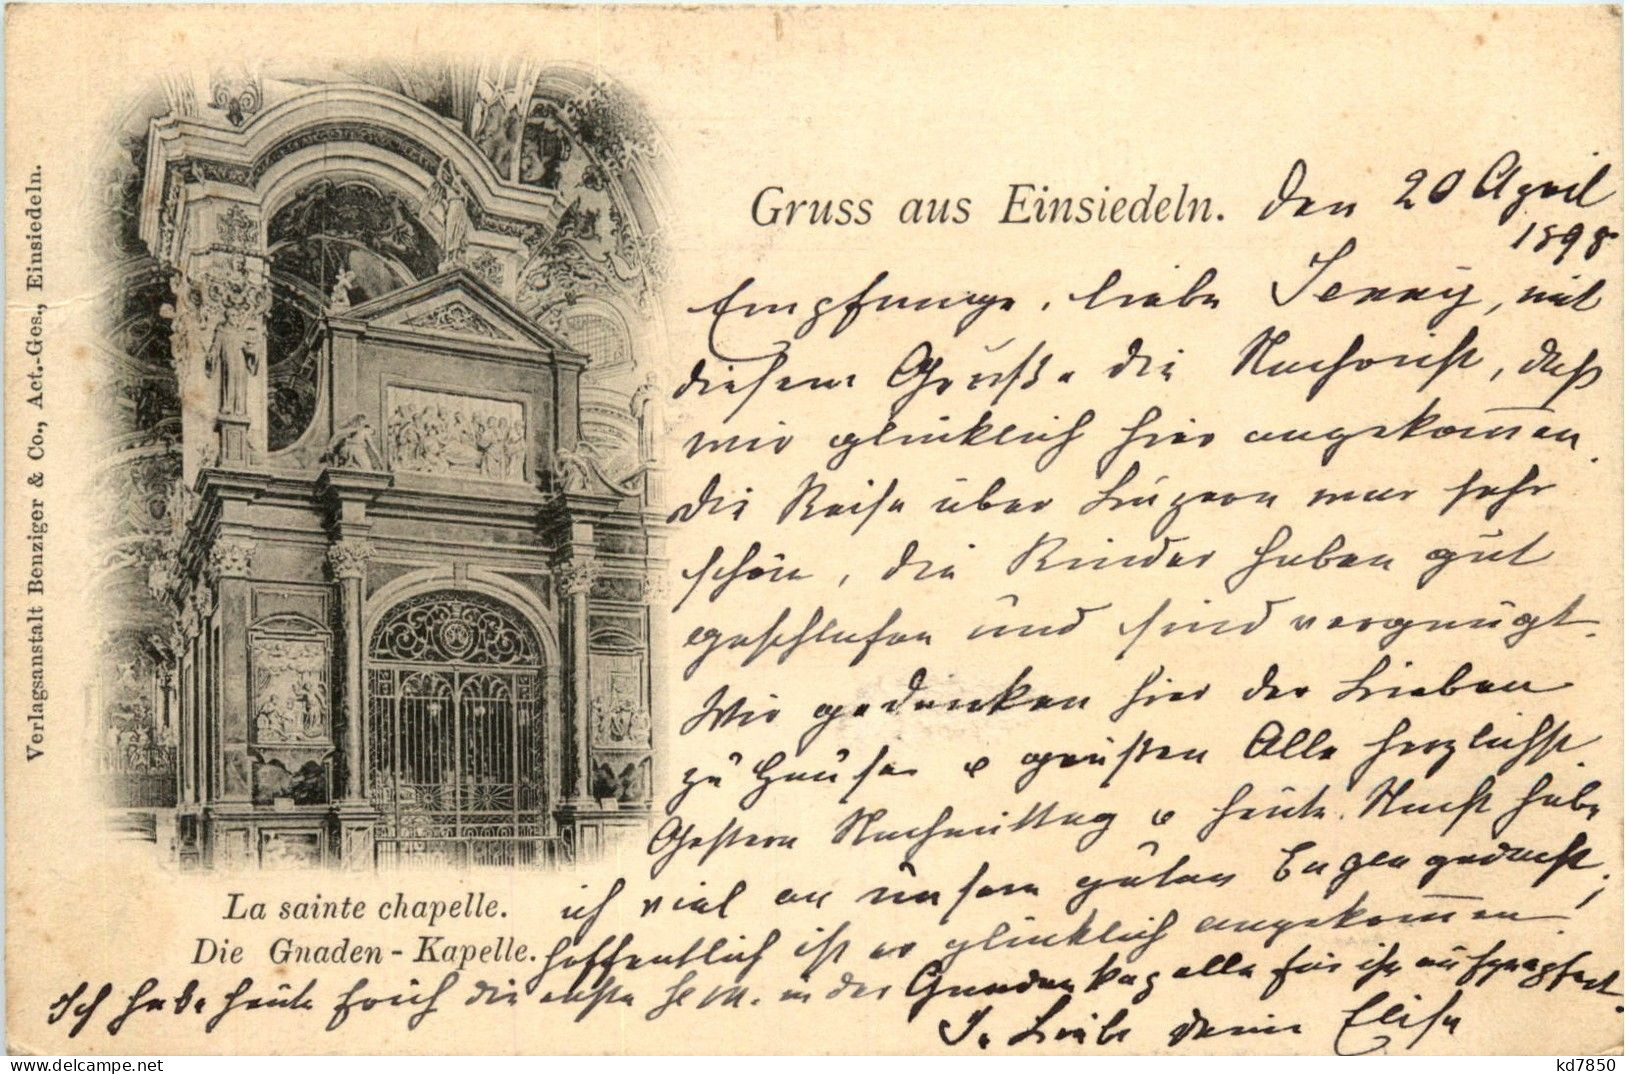 Verlagsanstalt Benziger & Co., Act.-Ges., Einsiedeln.
Gruss aus Einsiedeln. Den 20 April
1898
Empfange, liebe Jenny, mit
diesem Gruße die Nachricht, daß
wir glücklich hier angekom̅en.
Die Reise über Luzern war sehr
schön, die Kinder haben gut
geschlafen und sind vergnügt.
Wir gedenken hier der Lieben
zu Hause u grüßen Alle herzlichst.
Gestern Nachmittag u heute Nacht habe
ich viel an unsern guten Eugen gedacht,
hoffentlich ist er glücklich angekom̅en!
Ich habe heute früh die erste hl M. in der Gnadenkapelle für ihn aufgeopfert.
In Liebe deine Elise
La sainte chapelle.
Die Gnaden-Kapelle.
kd7850